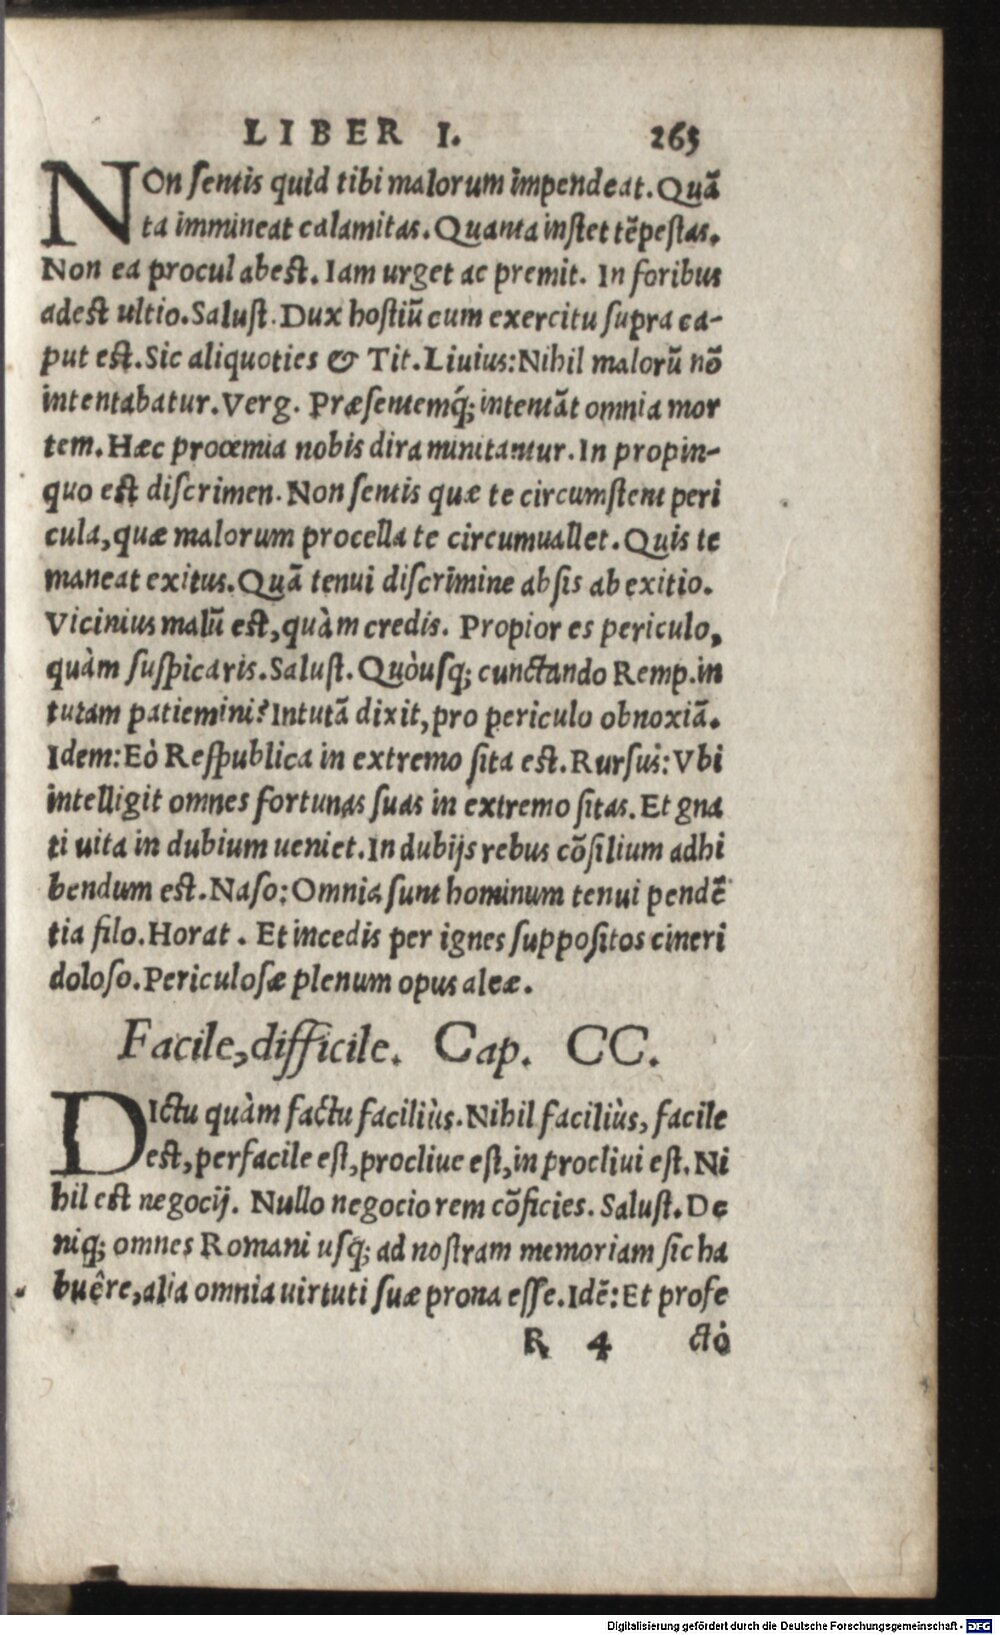 LIBER I. 263
NOn sentis quid tibi malorum impendeat. Quã
ta immineat calamitas. Quanta instet tẽpestas.
Non ea procul abest. Iam urget ac premit. In foribus
adest ultio. Salust. Dux hostiũ cum exercitu supra ca-
put est. Sic aliquoties & Tit. Liuius: Nihil malorũ nõ
intentabatur. Verg. Præsentemq́; intentãt omnia mor
tem. Hæc proœmia nobis dira minitantur. In propin-
quo est discrimen. Non sentis quæ te circumstent peri
cula, quæ malorum procella te circumuallet. Quis te
maneat exitus. Quã tenui discrimine absis ab exitio.
Vicinius malũ est, quàm credis. Propior es periculo,
quàm suspicaris. Salust. Quòusq; cunctando Remp. in
tutam patiemini? Intutã dixit, pro periculo obnoxiã.
Idem: Eò Respublica in extremo sita est. Rursus: Vbi
intelligit omnes fortunas suas in extremo sitas. Et gna
ti uita in dubium ueniet. In dubijs rebus cõsilium adhi
bendum est. Naso: Omnia sunt hominum tenui pendẽ
tia filo. Horat. Et incedis per ignes suppositos cineri
doloso. Periculosæ plenum opus aleæ.
Facile, difficile. Cap. CC.
DIctu quàm factu faciliùs. Nihil faciliùs, facile
est, perfacile est, procliue est, in procliui est. Ni
hil est negocij. Nullo negocio rem cõficies. Salust. De
niq; omnes Romani usq; ad nostram memoriam sic ha
buêre, alia omnia uirtuti suæ prona esse. Idẽ: Et profe
R 4 ctò
Digitalisierung gefördert durch die Deutsche Forschungsgemeinschaft - DFG